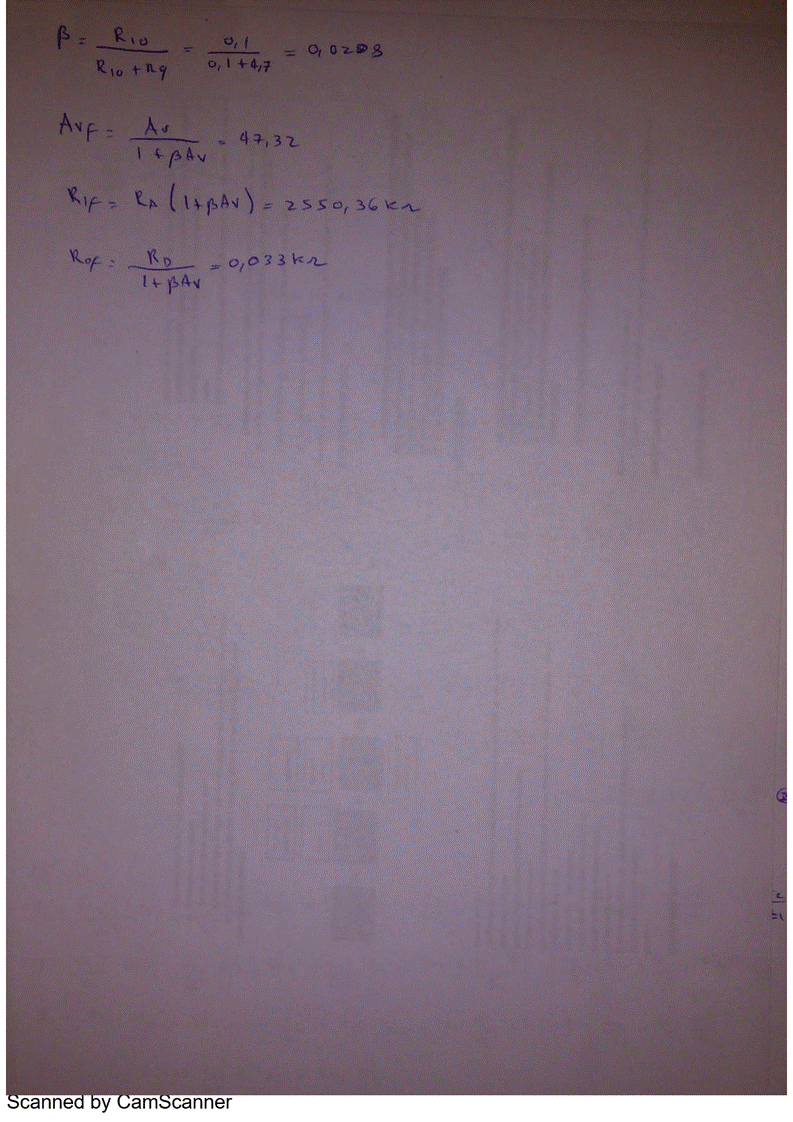 β = R10 / (R10 + R9) = 0,1 / (0,1+4,7) = 0,0208
AVF = Av / (1 + βAv) = 47,32
RIF = RA (1+βAv) = 2550,36 kΩ
ROF = RO / (1+βAv) = 0,033 kΩ
Scanned by CamScanner